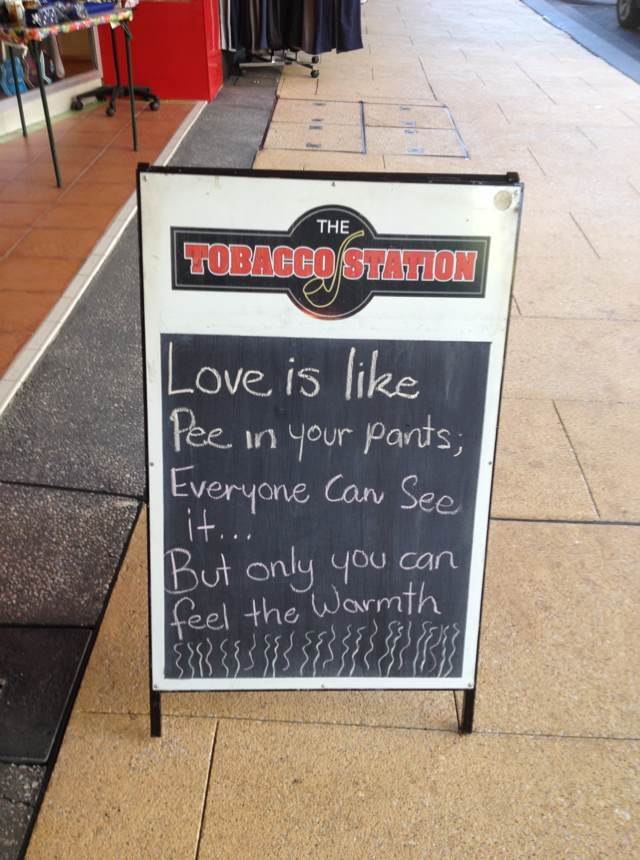 THE
TOBACCO STATION
Love is like
Pee in your pants;
Everyone Can See
it...
But only you can
feel the Warmth